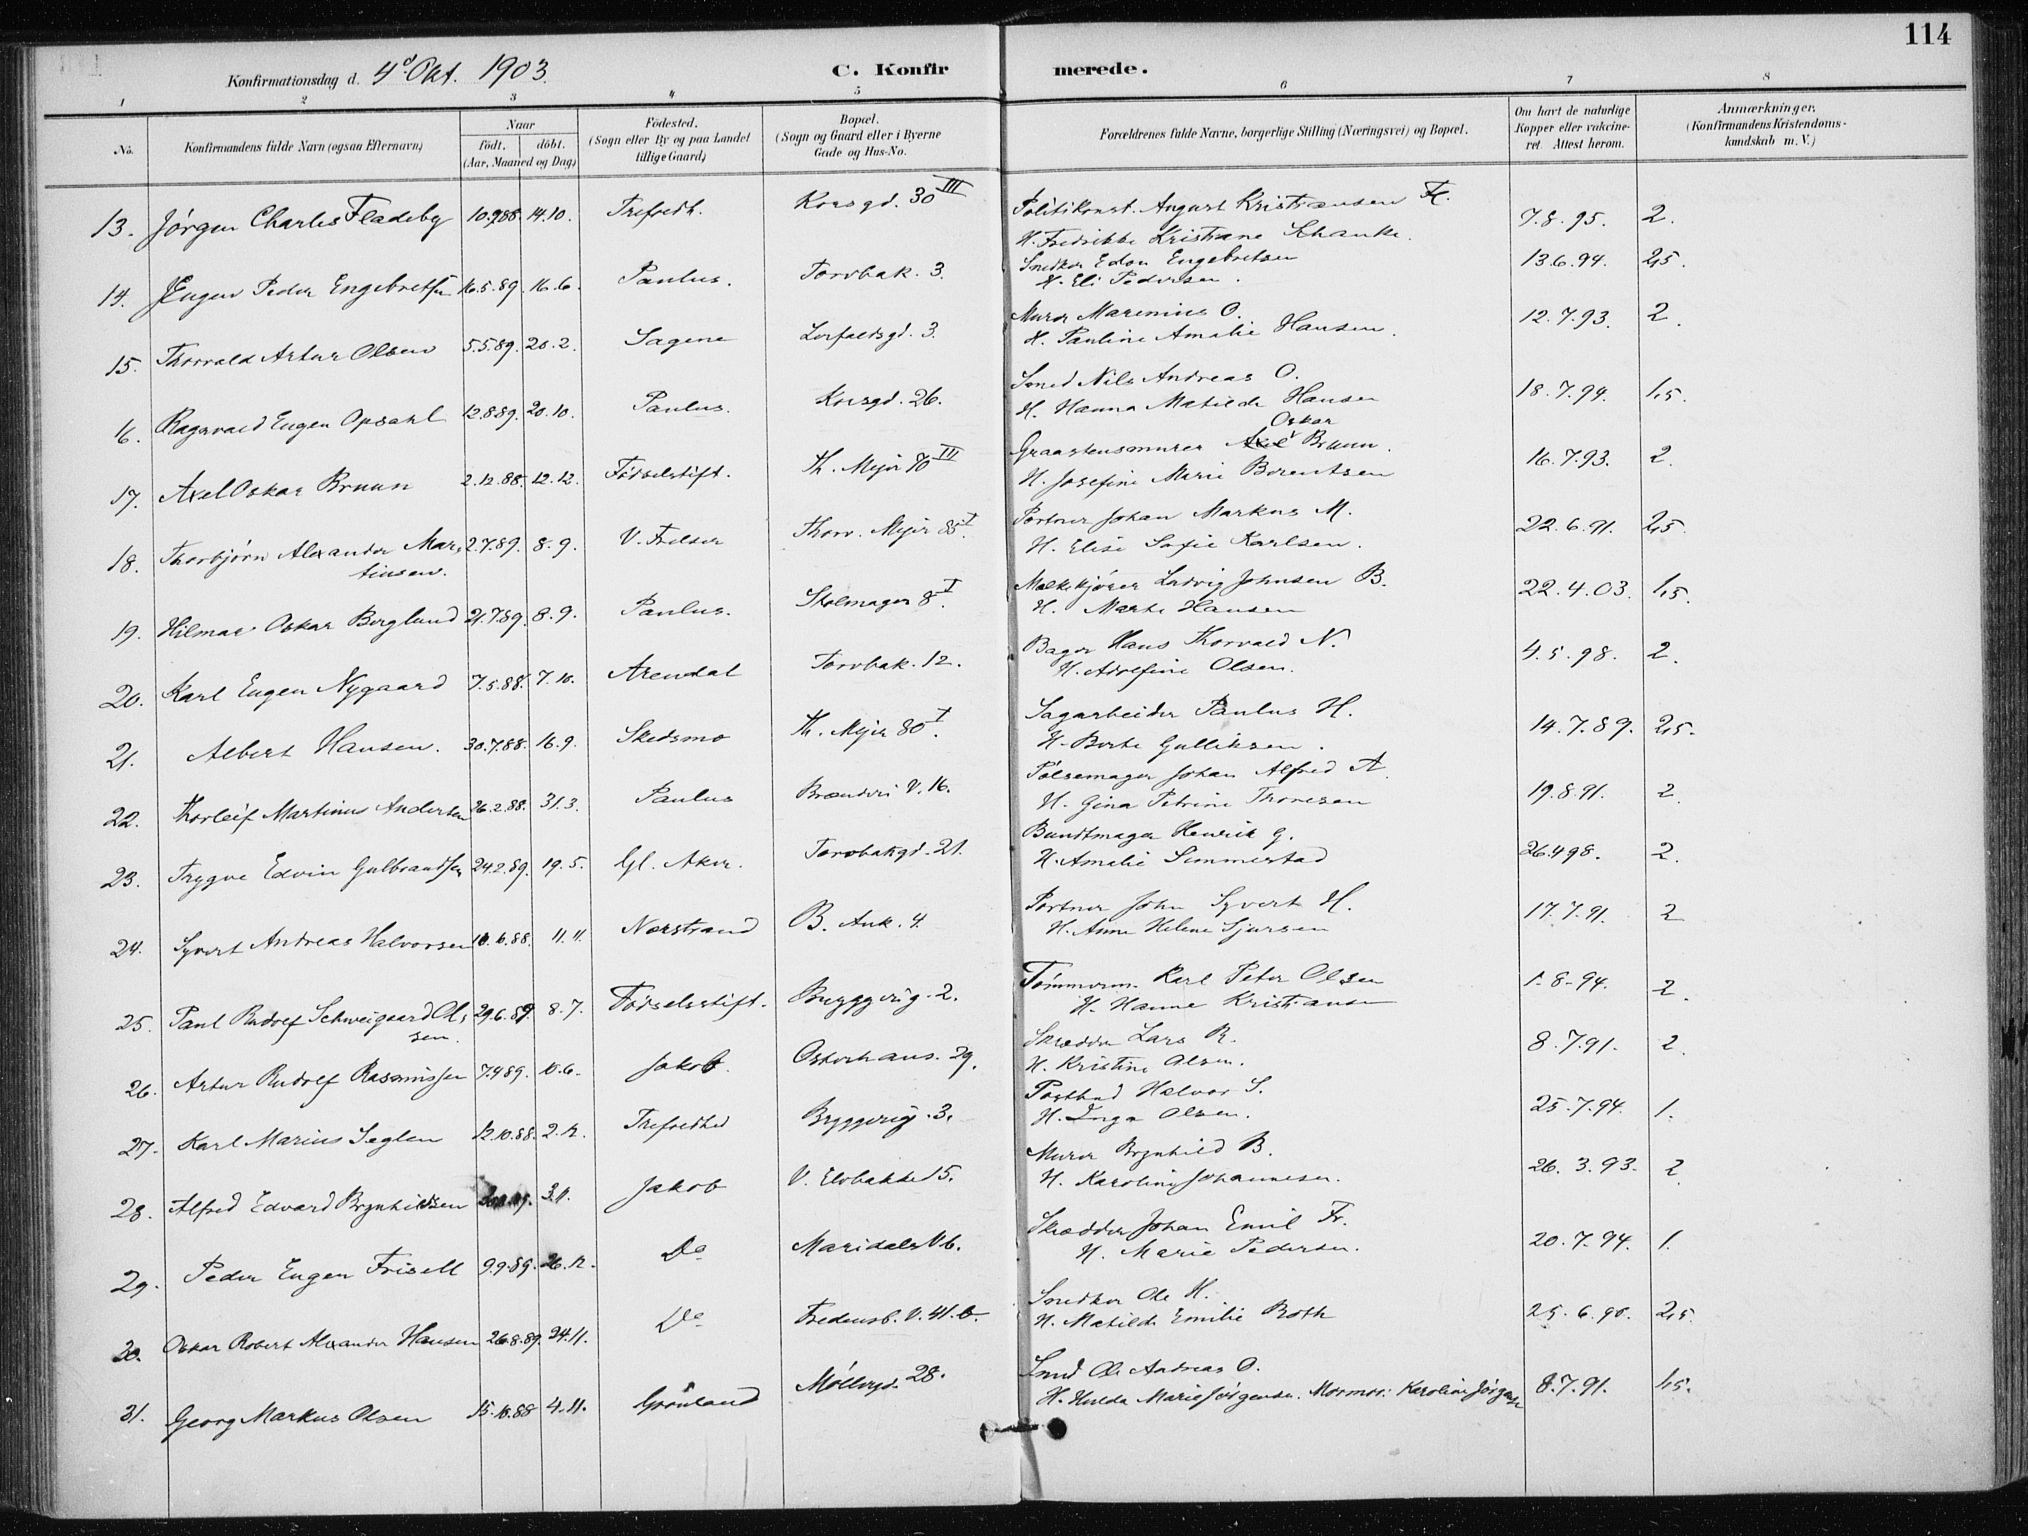 114
Konfirmationsdag d. 4de Okt. 1903.
C. Konfirmerede.
1 2 3 4 5 6 7 8
No. Konfirmandens fulde Navn (ogsaa Efternavn) Naar födt. döbt. (Aar, Maaned og Dag) Födested. (Sogn eller By og paa Landet tillige Gaard) Bopæl. (Sogn og Gaard eller i Byerne Gade og Hus-No. Forældrenes fulde Navne, borgerlige Stilling (Næringsvei) og Bopæl. Om havt de naturlige Kopper eller vakcineret. Attest herom. Anmærkninger. (Konfirmandens Kristendomskundskab m. V.)
13. Jørgen Charles Fladeby 10.9.88 14.10. Trefoldh. Korsgd. 30 III Politikonst. August Kristiansen Fl. 7.8.95. 2.
H. Fredrikke Kristiane Schanke.
14. Eugen Peder Engebretsen 16.5.89. 16.6. Paulus. Torvbak. 3. Snedker Edon Engebretsen 13.6.94. 2,5.
H. Eli Pedersen.
15. Thorvald Artur Olsen 5.5.89. 20.2. Sagene 3. Murer Marenius O. 12.7.93. 2.
H. Pauline Amalie Hansen.
16. Ragnvald Eugen Opsahl 12.8.89. 20.10. Paulus. Korsgd. 26. Smed Nils Andreas O. 18.7.94. 1,5.
H. Hanna Matilde Hansen
17. Axel Oskar Bruun 2.12.88. 12.12. Fødselsstift. Th. Mejer 70 III Graastensmurer Oskar Bruun. 16.7.93. 2.
H. Josefine Marie Berentsen
18. Thorbjørn Alexander Martinsen. 2.7.89. 8.9. V. Frelser Thorv. Mejer 85 I. Portner Johan Markus M. 22.6.91. 2,5
H. Elise Sofie Karlsen.
19. Hilmar Oskar Berglund 21.7.89. 8.9. Paulus. Skolmager 8 I. Melkekjører Ludvig Johnsen B. 22.4.03. 1,5.
H. Marte Hansen
20. Karl Eugen Nygaard 7.5.88. 7.10. Arendal Torvbak. 12. Bager Hans Thorvald N. 4.5.98. 2.
H. Adolfine Olsen.
21. Albert Hansen. 30.7.88. 16.9. Skedsmo Th. Mejer 80 I. Sagarbeider Paulus H. 14.7.89. 2,5.
H. Berte Gulliksen.
22. Thorleif Martinius Andersen 26.2.88. 31.3. Paulus Brænderi V. 16. Pølsemager Johan Alfred A. 19.8.91. 2.
H. Gina Petrine Thoresen
23. Trygve Edvin Gulbrandsen 24.2.89. 19.5. Gl. Aker. Torvbakgd. 21. Bundtmager Henrik G. 26.4.98. 2.
H. Amalie Simmerstad
24. Syvert Andreas Halvorsen 10.6.88. 11.11. Nerstrand B. Ank. 4. Portner John Syvert H. 17.7.91. 2
H. Anne Helene Sjursen
25. Paul Rudolf Schweigaard Olsen. 29.6.89. 8.7. Fødselsstift. Bryggerig. 2. Tømmerm. Karl Peter Olsen 1.8.94. 2.
H. Hanne Kristiansen
26. Artur Rudolf Rasmussen 7.4.89. 10.6. Jakob. Osterhaus. 29. Skrædder Lars R. 8.7.91. 2.
H. Kristine Olsen.
27. Karl Marius Seglen 12.10.88. 2.12. Trefoldhed Bryggerig. 3. Postbud Halvor S. 25.7.94. 1.
H. Inga Olsen.
28. Alfred Edvard Brynhildsen 3.11. Jakob V. Elvbakke 15. Murer Brynhild B. 26.3.93. 2
H. Karoline Johannesen.
29. Peder Eugen Frisell 9.9.89. 26.12. Do Maridals V. 6. Skrædder Johan Emil Fr. 20.7.94. 1.
H. Marie Pedersen.
30. Oskar Robert Alexander Hansen 26.8.89. 24.11. Do Fredensb. V. 41.b. Snedker Ole H. 25.6.90. 2,5.
H. Matilde Emilie Roth
31. Georg Markus Olsen 15.10.88 4.11. Grønland Møllergd. 28. Smed Ole Andreas O. 8.7.91. 1,5.
H. Hulda Marie Jørgensen. Mormor: Karoline Jørgensen